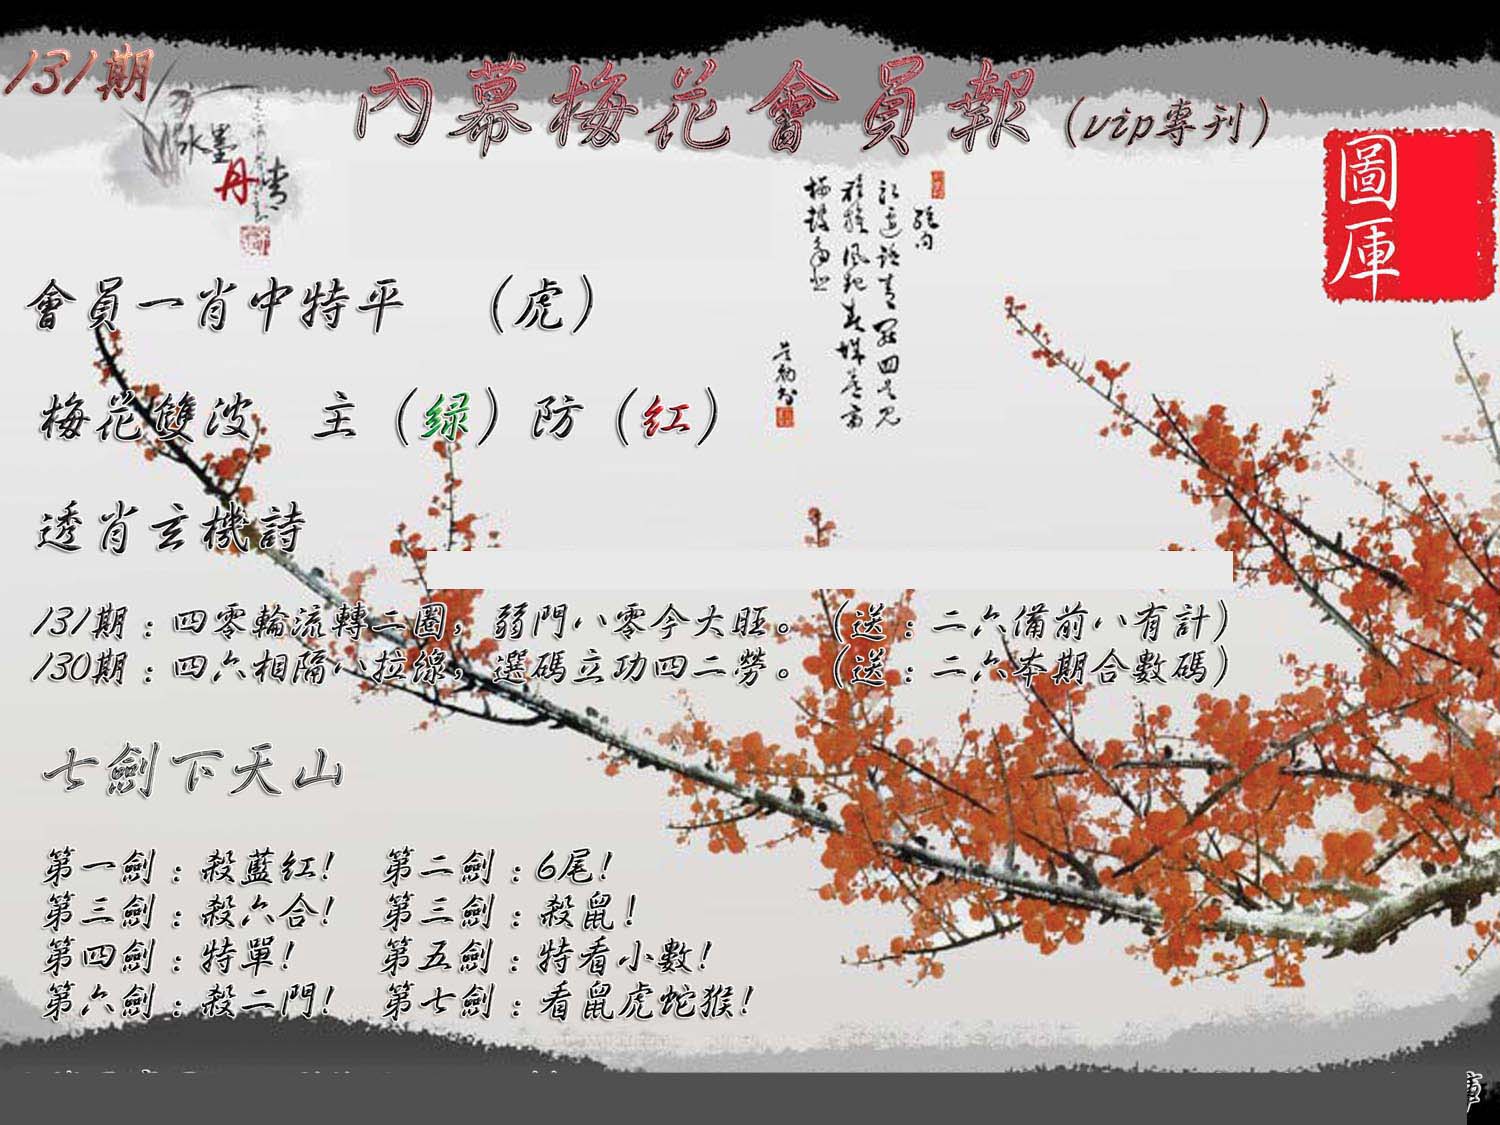 131期
內幕梅花會員報（vip專刊）
水墨
丹青
圖庫
會員一肖中特平　（虎）
梅花雙波　主（綠）防（红）
透肖玄機詩
131期：四零輪流轉二圈，弱門八零今大旺。（送：二六備前八有計）
130期：四六相隔八拉線，選碼立功四二勞。（送：二六本期合數碼）
七劍下天山
第一劍：殺藍紅！　第二劍：6尾！
第三劍：殺六合！　第三劍：殺鼠！
第四劍：特單！　第五劍：特看小數！
第六劍：殺二門！　第七劍：看鼠虎蛇猴！